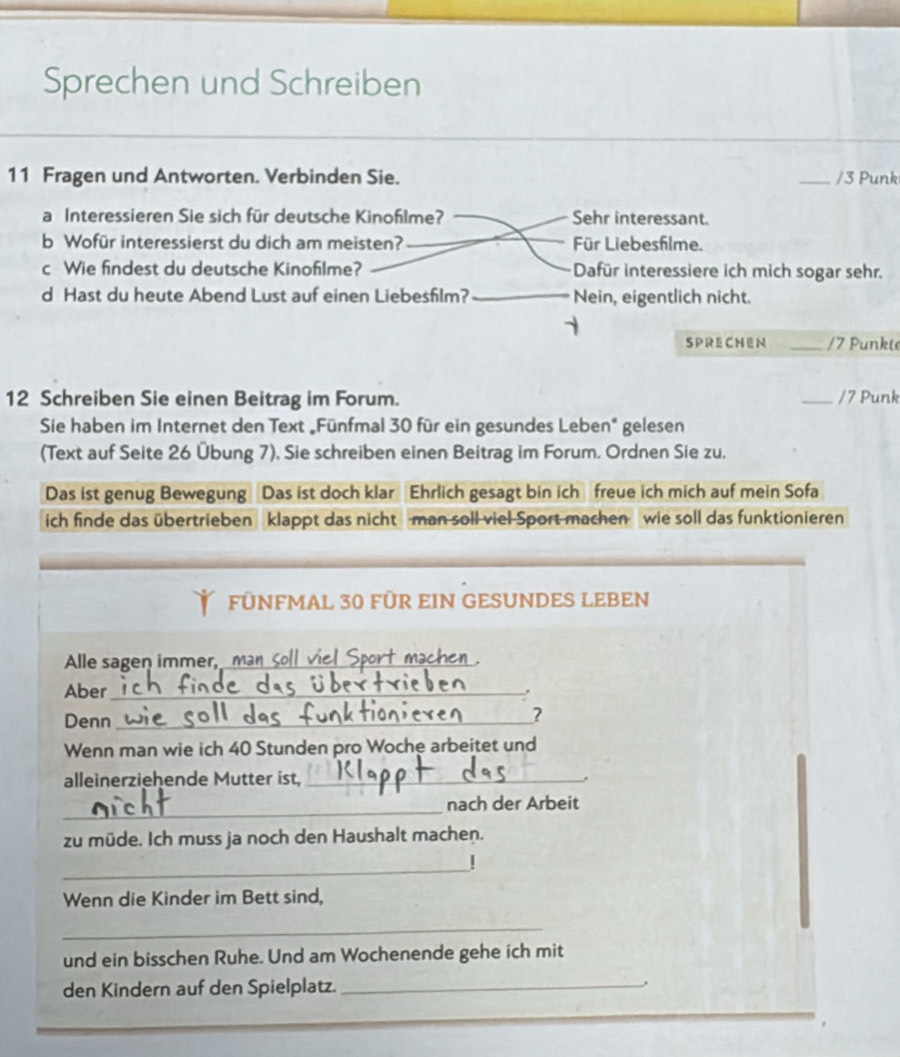 Sprechen und Schreiben
11 Fragen und Antworten. Verbinden Sie.
___ /3 Punk
a Interessieren Sie sich für deutsche Kinofilme?
Sehr interessant.
b Wofür interessierst du dich am meisten?
Für Liebesfilme.
c Wie findest du deutsche Kinofilme?
Dafür interessiere ich mich sogar sehr.
d Hast du heute Abend Lust auf einen Liebesfilm?
Nein, eigentlich nicht.
SPRECHEN ___ /7 Punkte
12 Schreiben Sie einen Beitrag im Forum.
___ /7 Punk
Sie haben im Internet den Text „Fünfmal 30 für ein gesundes Leben“ gelesen
(Text auf Seite 26 Übung 7). Sie schreiben einen Beitrag im Forum. Ordnen Sie zu.
Das ist genug Bewegung Das ist doch klar Ehrlich gesagt bin ich freue ich mich auf mein Sofa
ich finde das übertrieben klappt das nicht man soll viel Sport machen wie soll das funktionieren
FÜNFMAL 30 FÜR EIN GESUNDES LEBEN
Alle sagen immer, man soll viel Sport machen.
Aber ich finde das übertrieben.
Denn wie soll das funktionieren?
Wenn man wie ich 40 Stunden pro Woche arbeitet und
alleinerziehende Mutter ist, Klappt das.
nicht nach der Arbeit
zu müde. Ich muss ja noch den Haushalt machen.
___!
Wenn die Kinder im Bett sind,
und ein bisschen Ruhe. Und am Wochenende gehe ich mit
den Kindern auf den Spielplatz. ___.